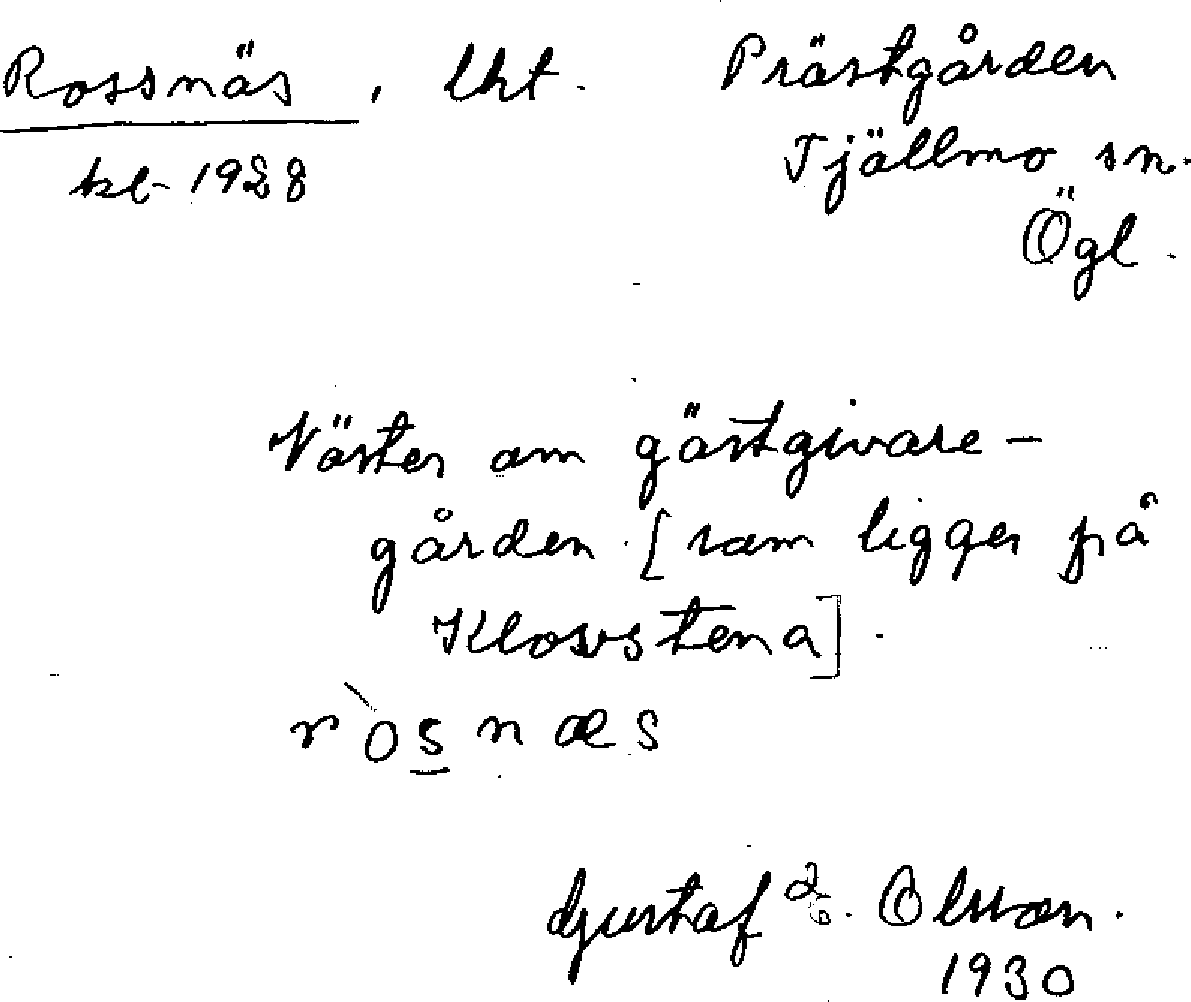 Rossnäs, lht. Prästgården
kl. 1928 Tjällmo sn.
Ögl.
Väster om gästgivare-
gården [som ligger på
Klovstena].
r`os̲næs
Gustaf Olsson.
1930